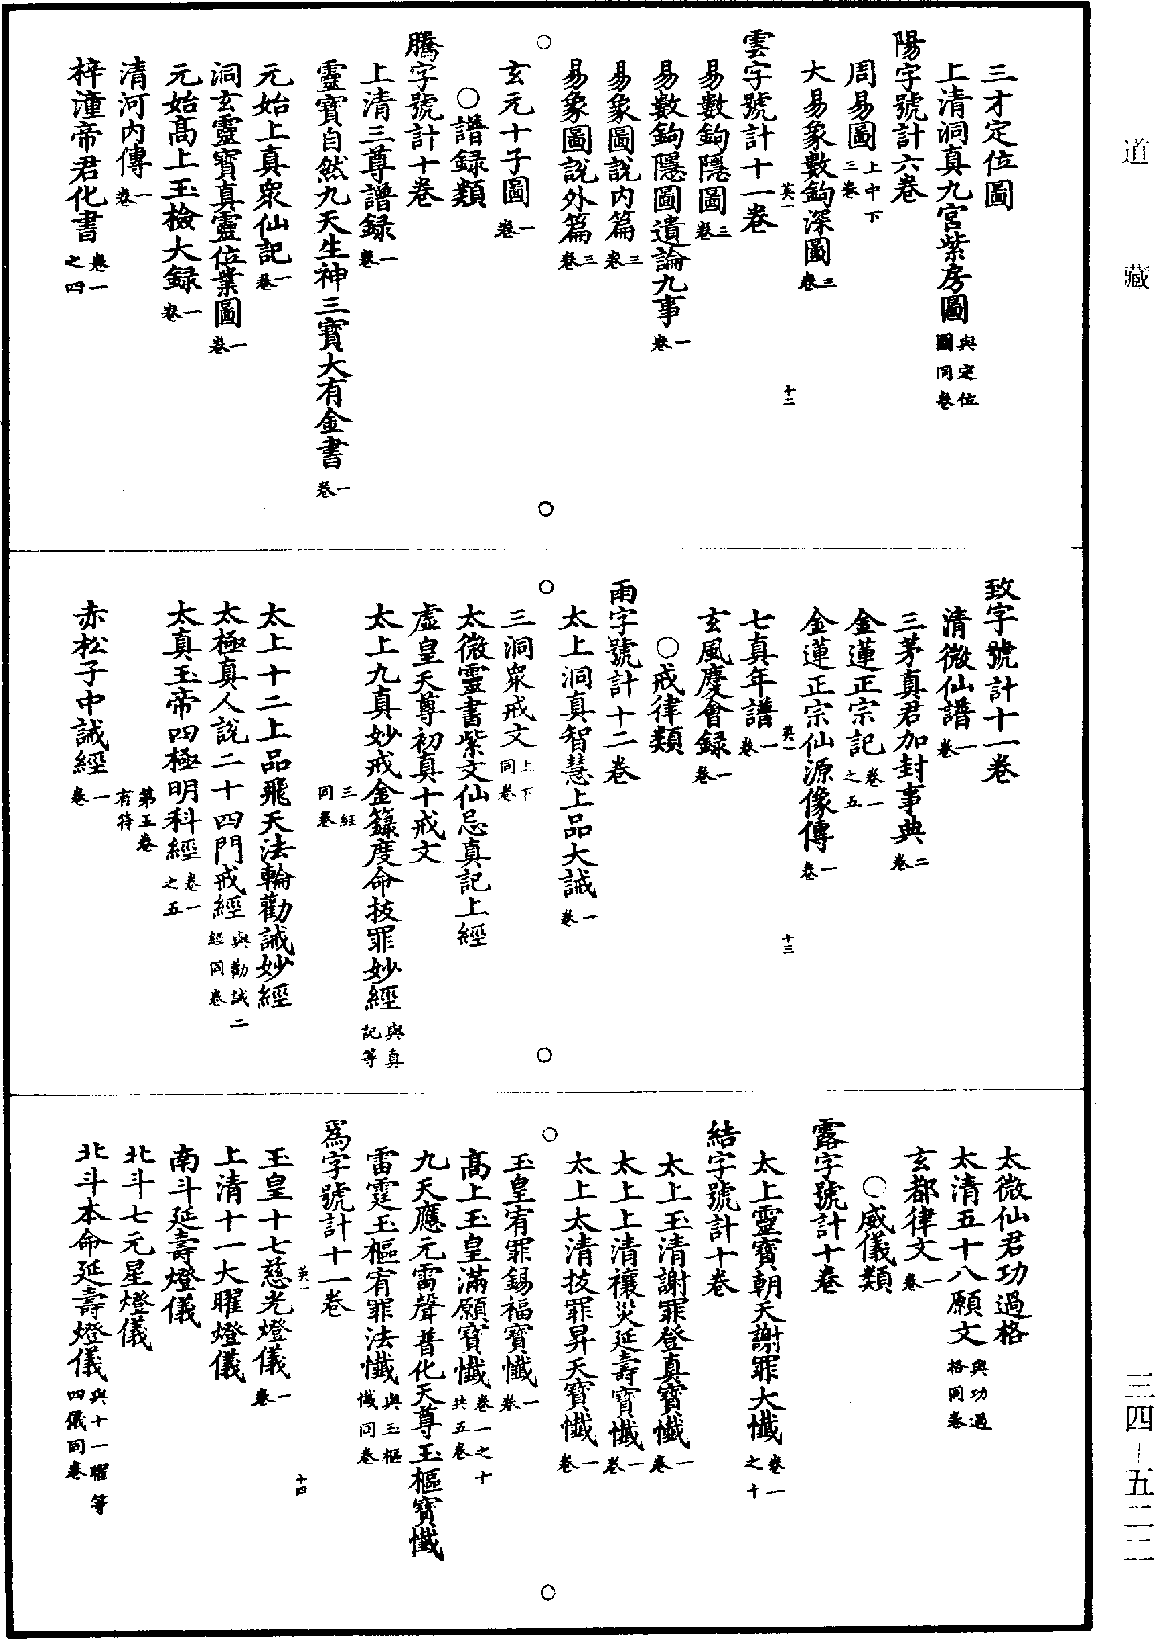 道藏
三才定位圖
上清洞真九宮紫房圖 與定位圖同卷
陽字號計六卷
周易圖 上中下三卷
大易象數鈎深圖 三卷
英一 十二
雲字號計十一卷
易數鈎隱圖 三卷
易數鈎隱圖遺論九事 一卷
易象圖說內篇 三卷
易象圖說外篇 三卷
○
玄元十子圖 一卷
○譜録類
騰字號計十卷
上清三尊譜録 一卷
靈寶自然九天生神三寶大有金書 一卷
元始上真衆仙記 一卷
洞玄靈寶真靈位業圖 一卷
元始高上玉檢大録 一卷
清河內傳 一卷
梓潼帝君化書 卷一之四
○
致字號計十一卷
清微仙譜 一卷
三茅真君加封事典 二卷
金蓮正宗記 卷一之五
金蓮正宗仙源像傳 一卷
英一 十三
七真年譜 一卷
玄風慶會録 一卷
○戒律類
雨字號計十二卷
太上洞真智慧上品大誡 一卷
○
三洞衆戒文 上下同卷
太微靈書紫文仙忌真記上經
虛皇天尊初真十戒文
太上九真妙戒金籙度命拔罪妙經 與真記等三經同卷
太上十二上品飛天法輪勸誡妙經
太極真人說二十四門戒經 與勸誡二經同卷
太真玉帝四極明科經 卷一之五
第五卷有符
赤松子中誡經 一卷
○
太微仙君功過格
太清五十八願文 與功過格同卷
玄都律文 一卷
○威儀類
露字號計十卷
太上靈寶朝天謝罪大懺 卷一之十
結字號計十卷
太上玉清謝罪登真寶懺 一卷
太上上清禳災延壽寶懺 一卷
太上太清拔罪昇天寶懺 一卷
○
玉皇宥罪錫福寶懺 一卷
高上玉皇滿願寶懺 卷一之十共五卷
九天應元雷聲普化天尊玉樞寶懺
雷霆玉樞宥罪法懺 與玉樞懺同卷
爲字號計十一卷
英一 十四
玉皇十七慈光燈儀 一卷
上清十一大曜燈儀
南斗延壽燈儀
北斗七元星燈儀
北斗本命延壽燈儀 與十一曜等四儀同卷
○
三四—五二二